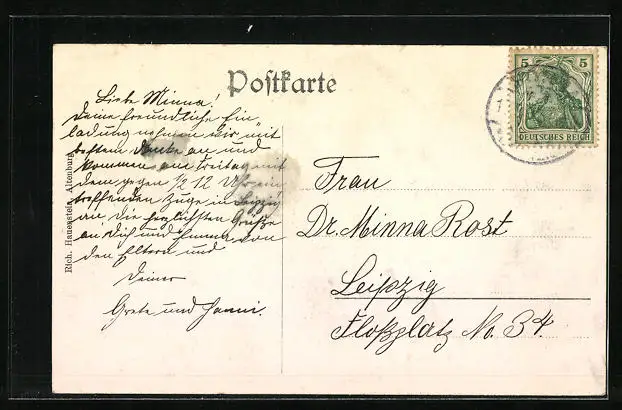 Postkarte
Liebe Minna!
Deine freundliche Ein
ladung nehmen wir mit
bestem Danke an und
kommen am Freitag mit
dem gegen ½12 Uhr ein
treffenden Zuge in Leipzig
an die herzlichsten Grüße
an Dich und Emma von
den Eltern und
Deiner
Grete und Hanni.
Rich. Hauenstein, Altenburg
5 5
DEUTSCHES REICH
Frau
Dr. Minna Rost
Leipzig
Floßplatz No. 34.